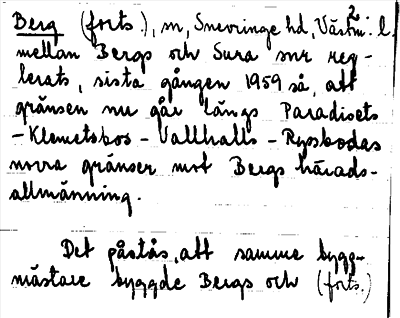 Berg (forts.), sn, Snevringe hd, Västm. l. 2.
mellan Bergs och Sura snr reg-
lerats, sista gången 1959 så, att
gränsen nu går längs Paradisets
-Klemetsbos - Vallhalls - Rysbodas
norra gränser mot Bergs härads-
allmänning.
Det påstås, att samme bygg-
mästare byggde Bergs och (forts.)